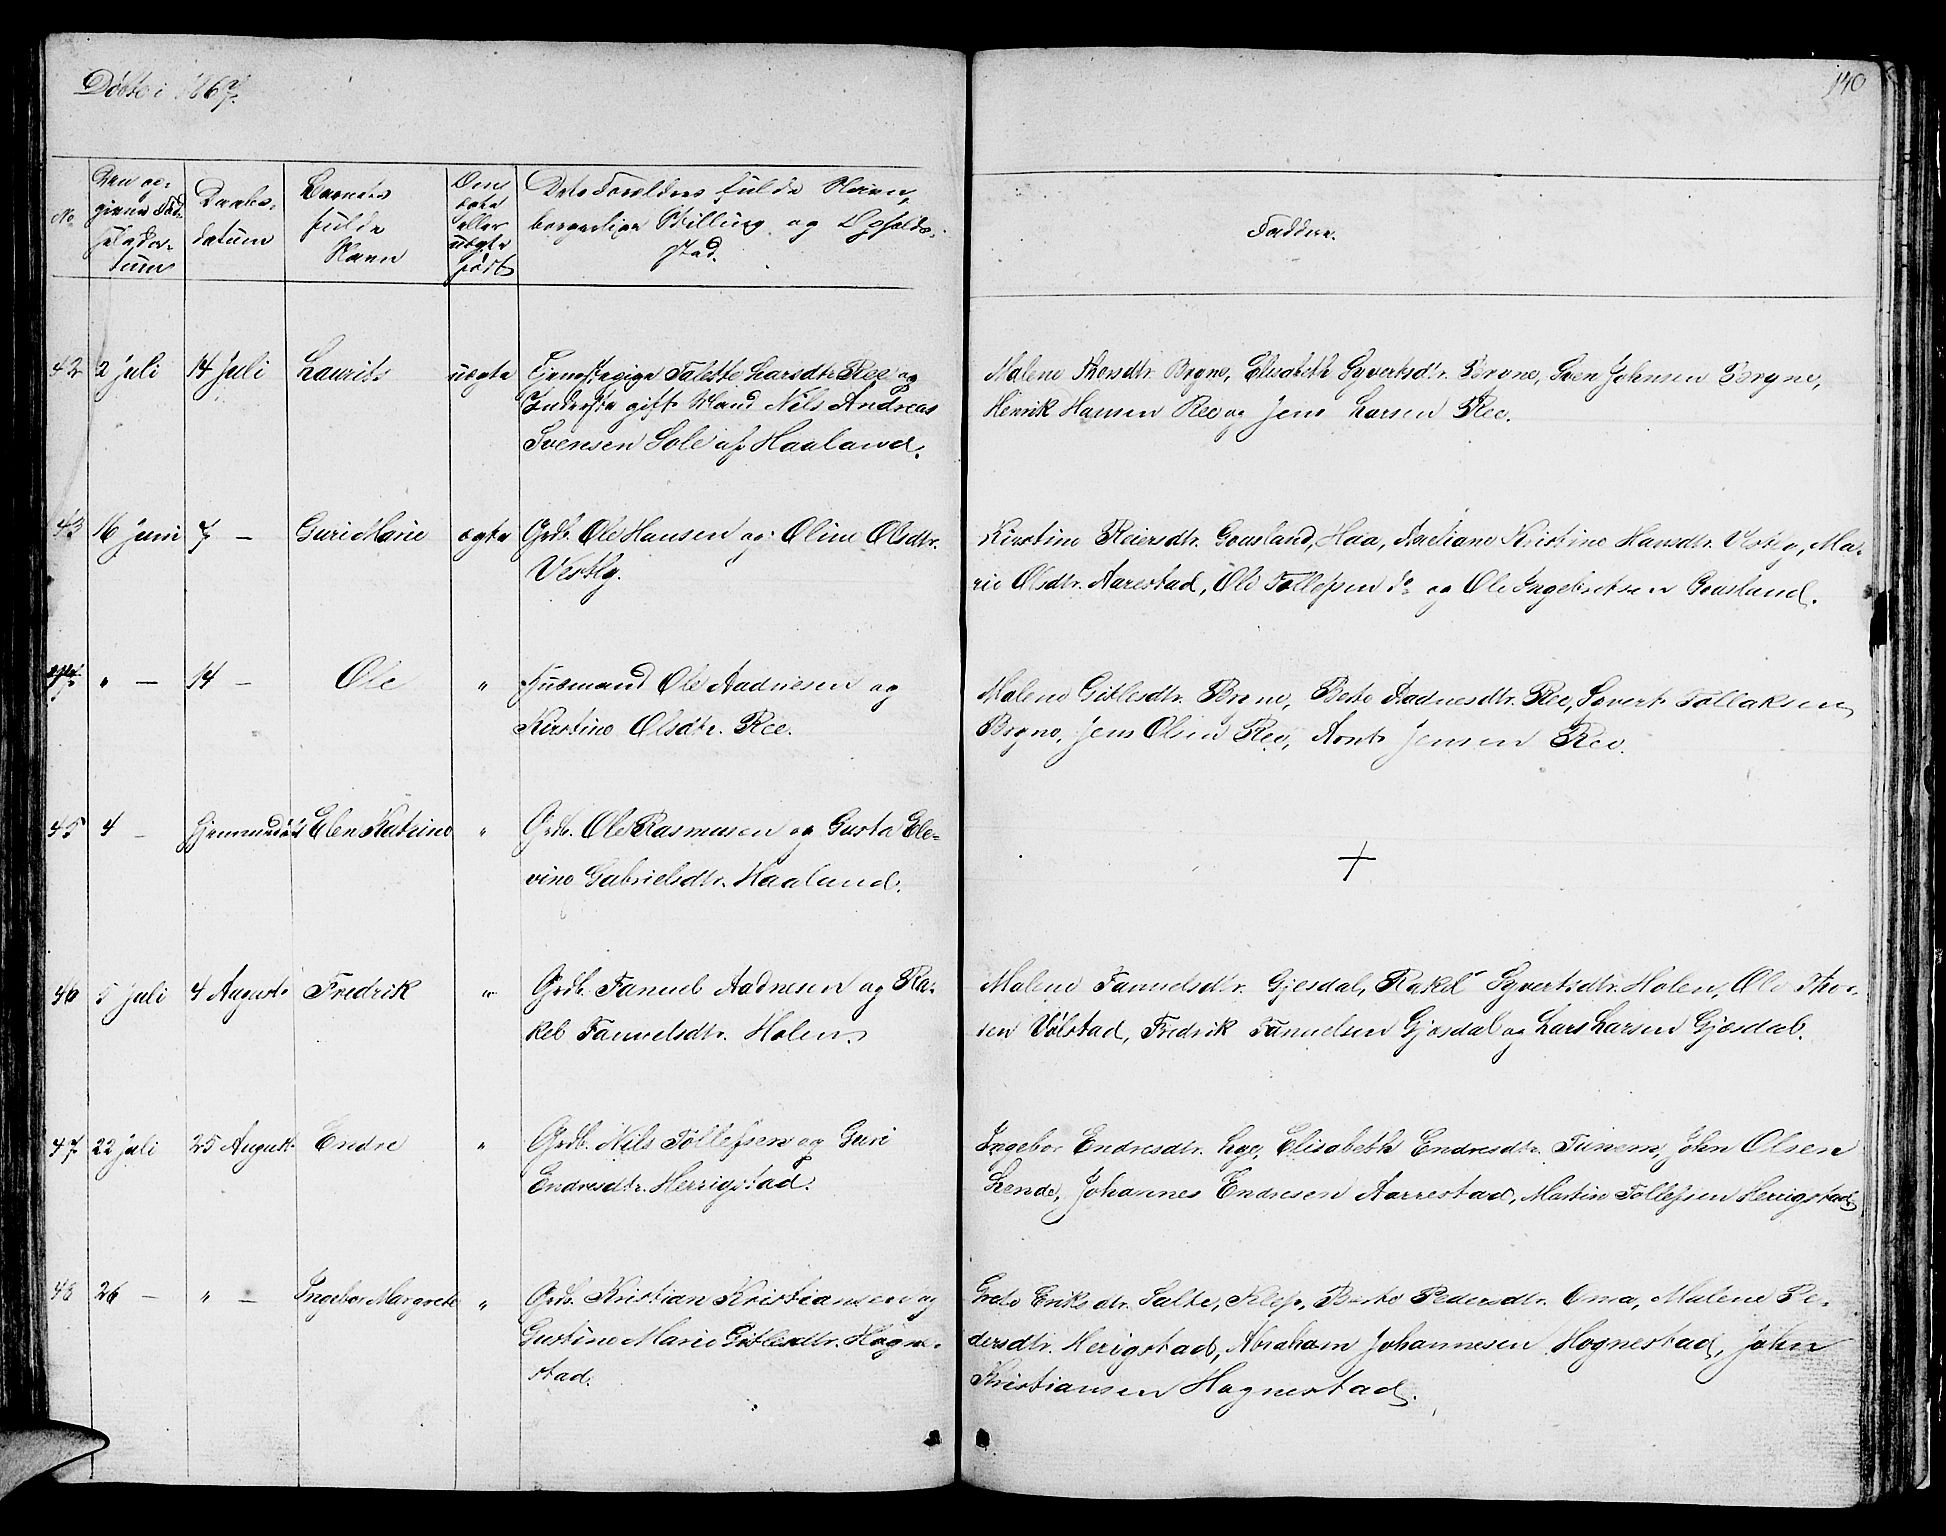 Døbte i 1867.
140
No
Den op-
givne Fød-
selsda-
tum
Daabs-
datum
Barnets
fulde
Navn
Om
ægte
eller
uægte
født
Dets Forældres fulde Navn,
borgerlige Stilling og Opholds-
sted.
Faddere.
42 2 Juli 14 Juli Laurits uægte Tjenestepige Talette Larsdtr. Ree og
Inderste gift Mand Nils Andreas
Svensen Sole af Haaland.
Malene Thorsdtr. Bryne, Elisabeth Syvertsdtr. Bryne, Sven Johnsen Bryne,
Henrik Hansen Ree og Jens Larsen Ree.
43 16 Juni 7 — Guri Marie ægte Grdb. Ole Hansen og Oline Olsdtr.
Vestly.
Kirstine Reiersdtr. Grusland, Haa, Kristine Hansdtr. Vestly, Ma-
rie Olsdtr. Aarestad, Ole Tollefsen do og Ole Ingebretsen Grusland.
44 " — 14 — Ole " Husmand Ole Aadnesen og
Kirstine Olsdtr. Ree.
Malene Gitlesdtr. Bryne, Berte Aadnesdtr. Ree, Sivert Tollaksen
Bryne, Jens Olsen Ree, Arnt Jensen Ree.
45 4 — Hjemmedøbt Elen Katrine " Grdb. Ole Rasmusen og Gurta Ele-
vine Gabrielsdtr. Haaland.
+
46 5 Juli 4 August Fredrik " Grdb. Fanuel Aadnesen og Ra-
kel Fanuelsdtr. Holen.
Malene Fanuelsdtr. Gjesdal, Rakel Syvertsdtr. Holen, Ole Thor-
sen Vølstad, Fredrik Fanuelsen Gjesdal og Lars Larsen Gjesdal.
47 22 Juli 25 August Endre " Grdb. Nils Tollefsen og Guri
Endresdtr. Herrigstad.
Ingebor Endresdtr. Lye, Elisabeth Endresdtr. Tunem, John Olsen
Lende, Johannes Endresen Aarrestad, Martin Tollefsen Herigstad.
48 26 — " — Ingebor Margrete " Grdb. Kristian Kristiansen og
Gustine Marie Gitlesdtr. Hogne-
stad.
Grete Eriksdtr. Salte, Klep, Berte Pedersdtr. Oma, Malene Pe-
dersdtr. Herigstad, Abraham Johannesen Hognestad, John
Kristiansen Hognestad.